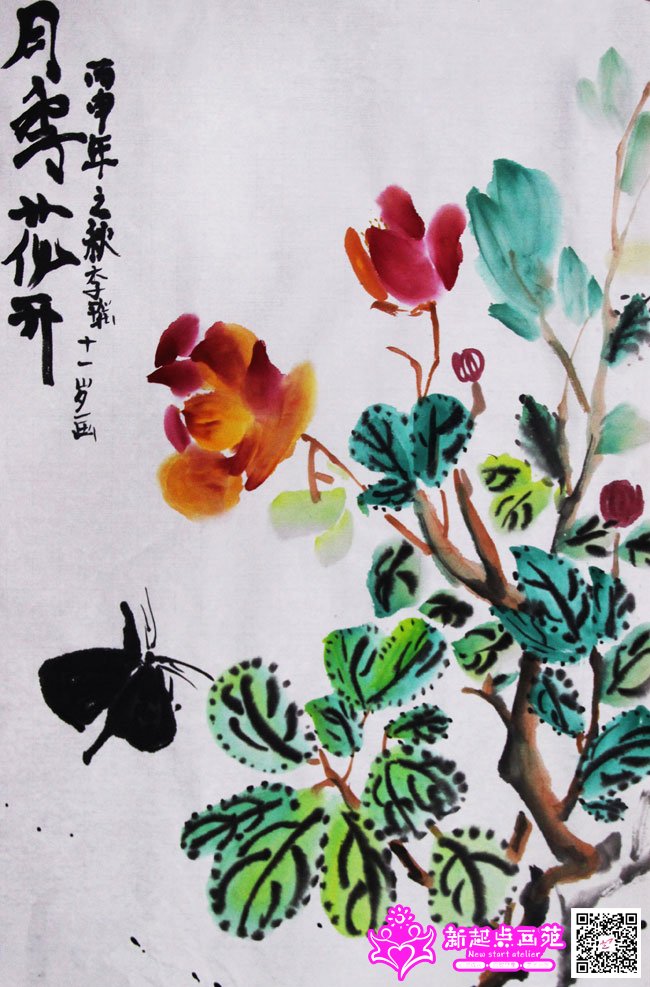 月季花开
丙申年之秋李 十一岁画
新起点画苑
New start atelier